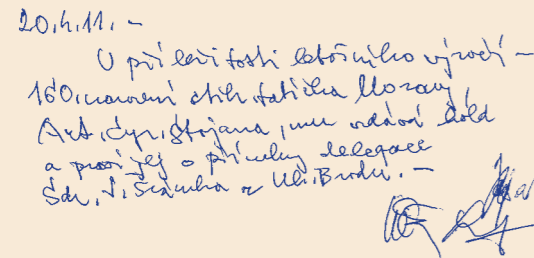 20.4.11. –
U příležitosti letošního výročí –
160. narození ctih. tatíčka Moravy
Ant. Cyr. Stojana, mu vzdává hold
a prosí jej o přímluvy delegace
Sdr. J. z Uh. Brodu. –